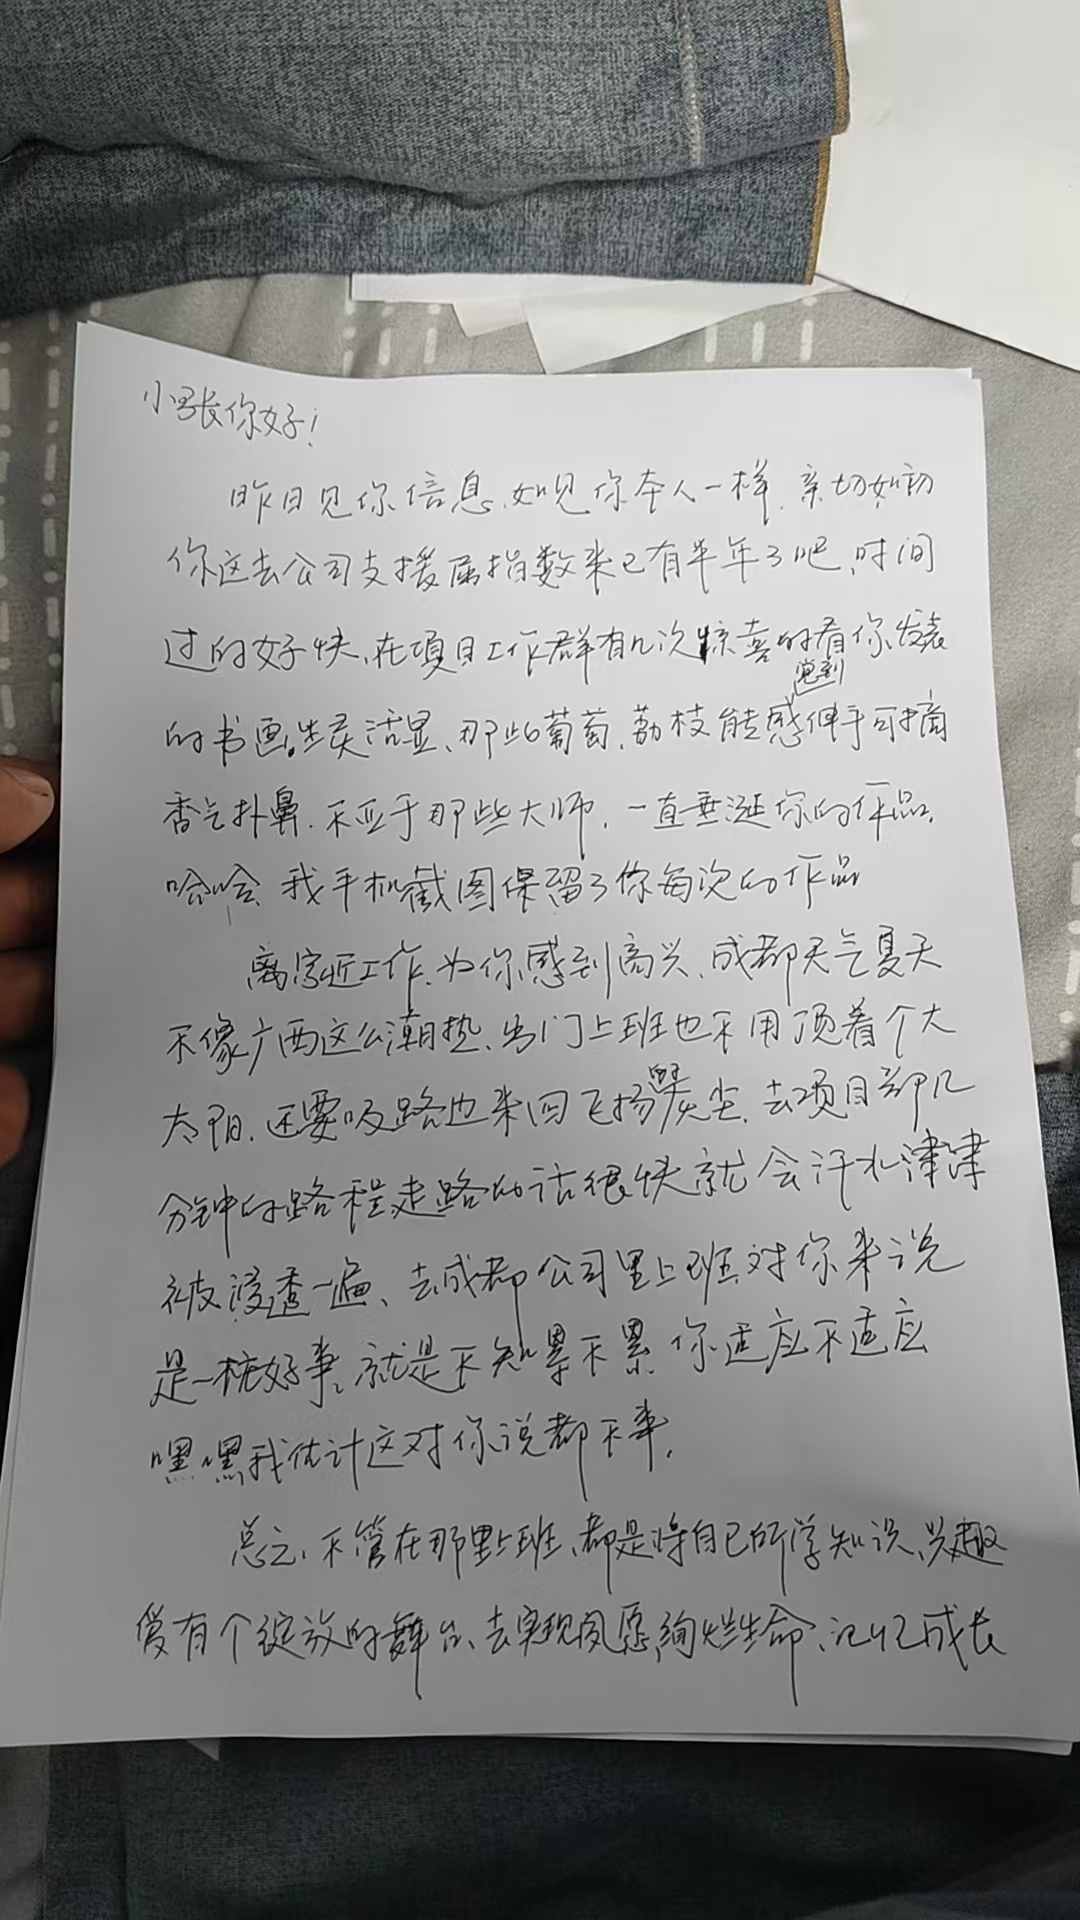 小张你好！
昨日见你信息、如见你本人一样、亲切如初
你这去公司支援屈指数来已有半年了吧、时间
过的好快、在项目工作群有几次惊喜的看你发表
的书画。生灵活显、那些葡萄、荔枝能感觉到伸手可摘
香气扑鼻、不亚于那些大师，一直垂涎你的作品。
哈哈、我手机截图保留了你每次的作品
离家近工作、为你感到高兴、成都天气夏天
不像广西这么潮热、出门上班也不用顶着个大
太阳、还要吸路边来回飞扬灰尘、去项目部几
分钟的路程走路的话很快就会汗水津津
被浸透一遍、去成都公司里上班、对你来说
是一桩好事。就是不知累不累、你适应不适应
嘿嘿，我估计这对你说都不事。
总之、不管在那里上班、都是将自己所学知识、兴趣
爱有个绽放的舞台、去实现夙愿，绚烂生命、记忆成长